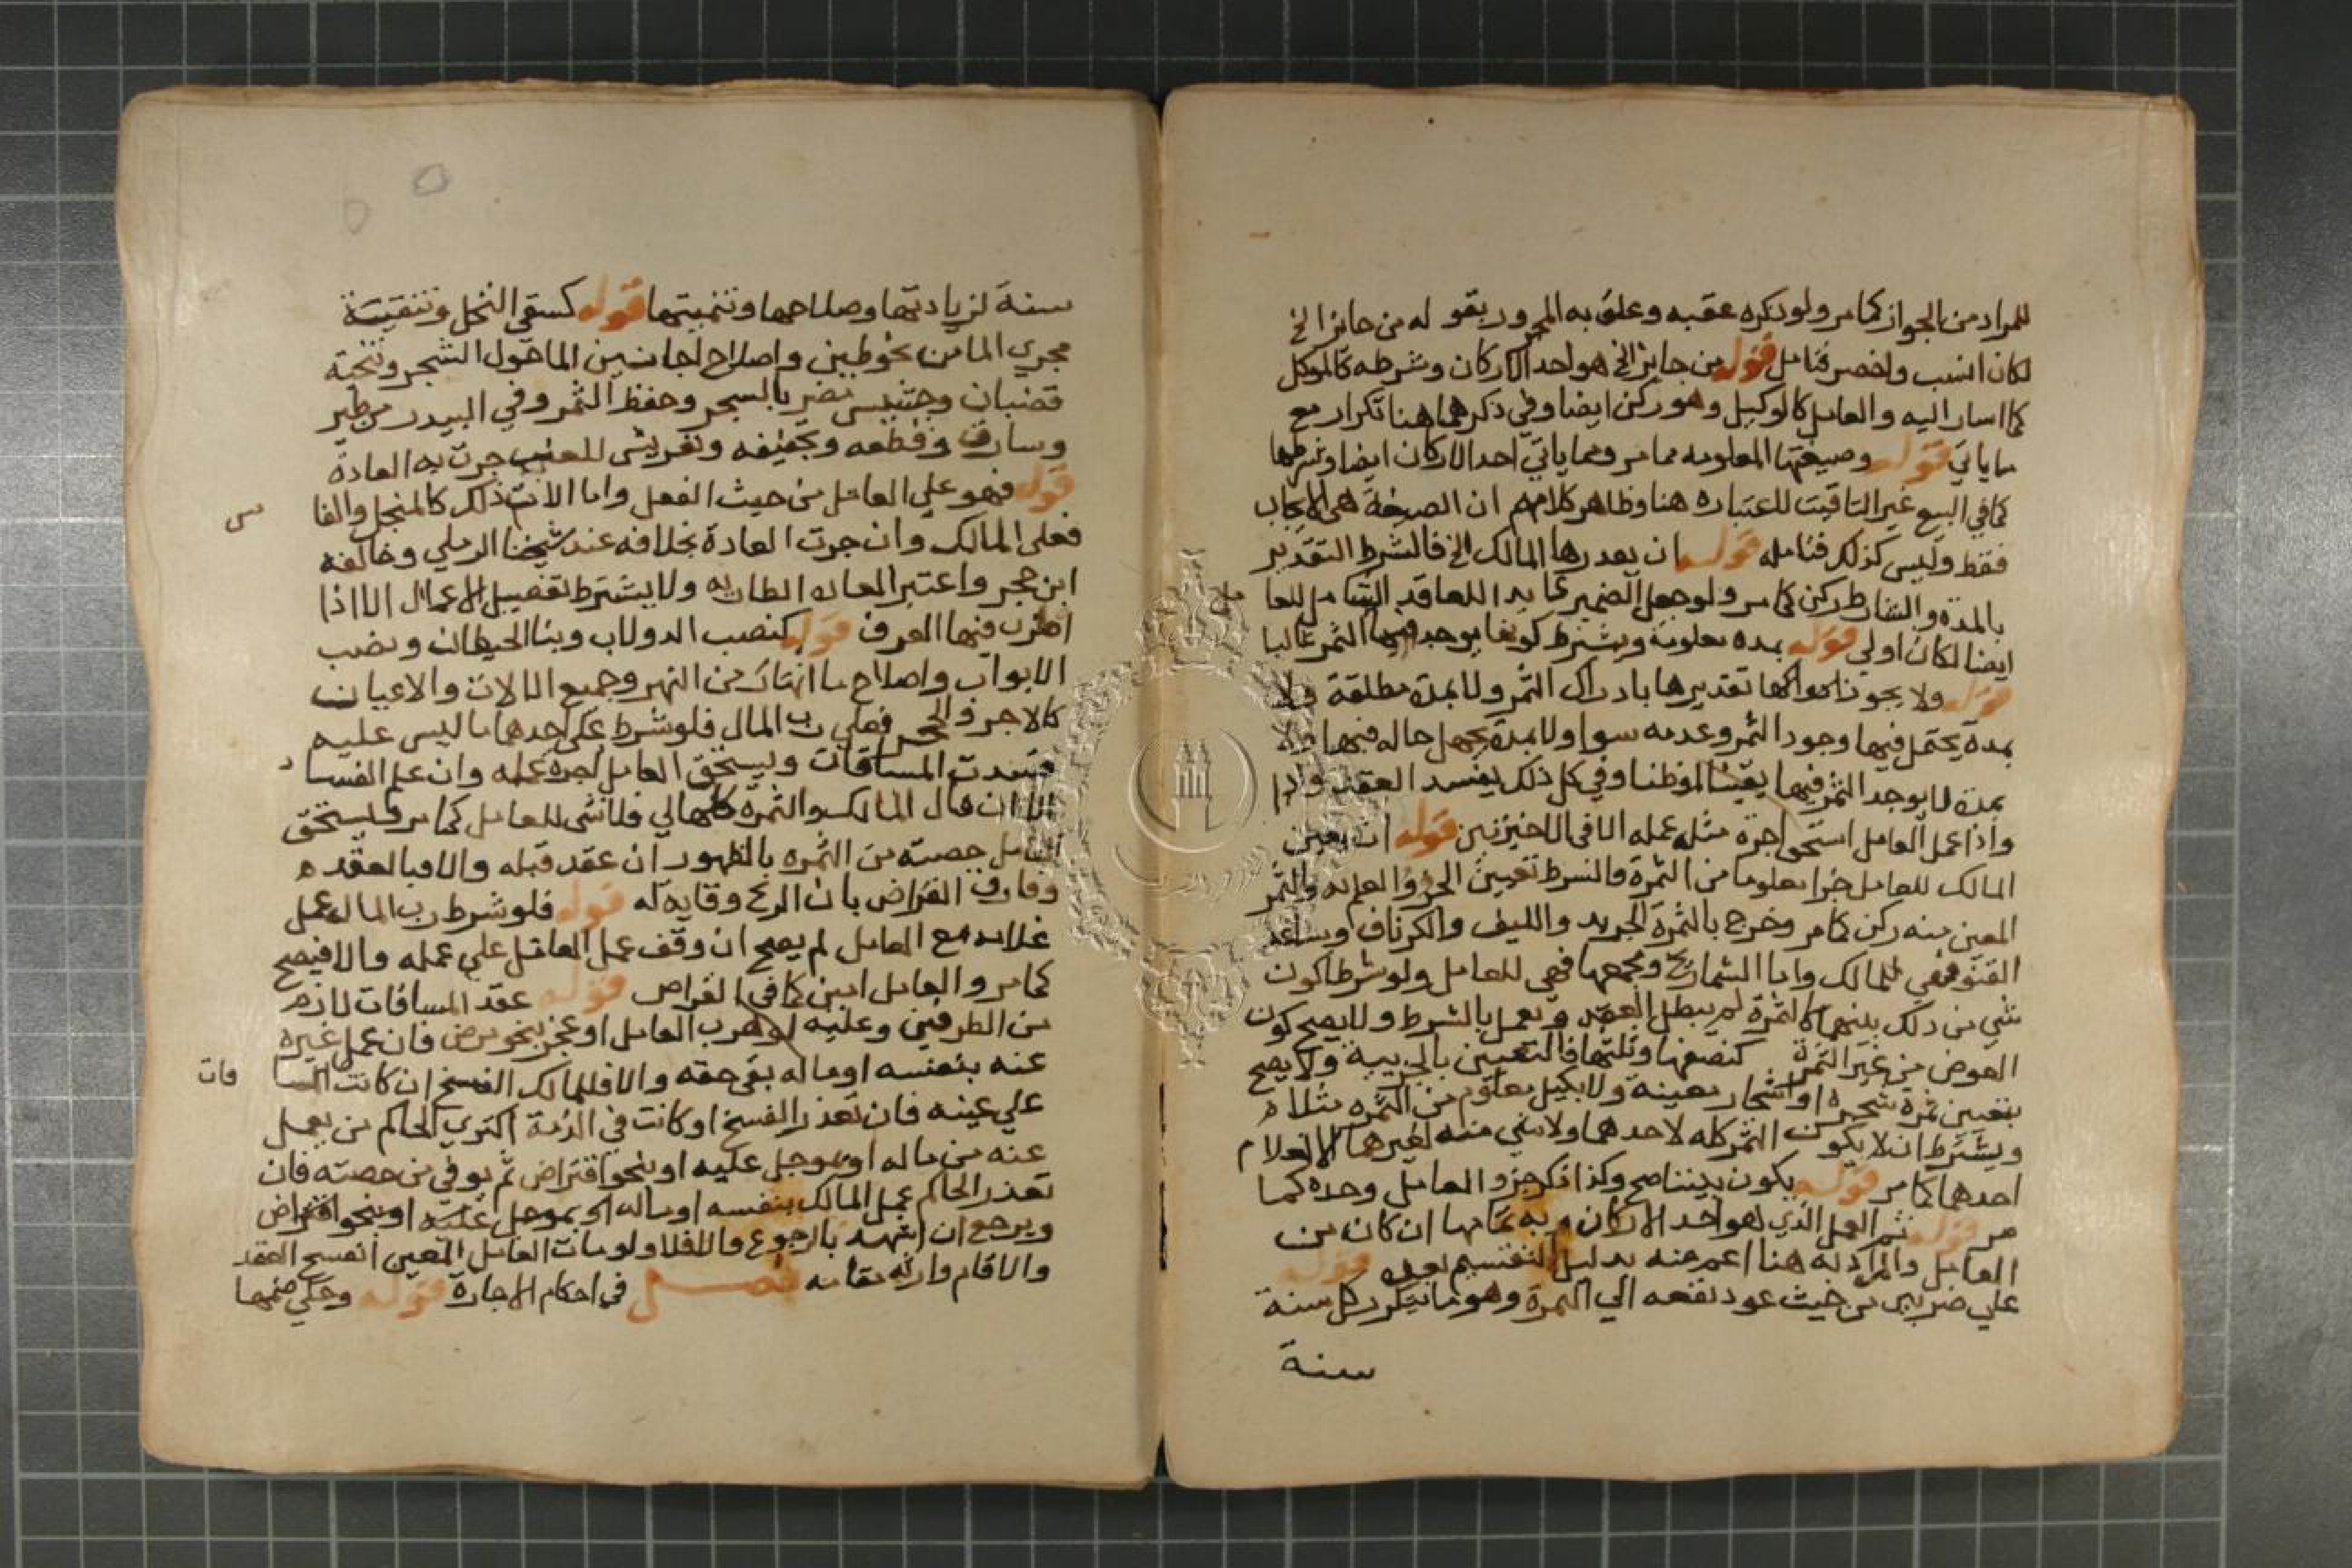 للمراد من الجواز كما مر ولو ذكره عقبه وعلق به المجرور بقوله من جايز الخ
لكان انسب واخصر فتامل قوله من جايز الخ هو احد الاركان وشرطه كالموكل
كما اشار اليه والعامل كالوكيل وهو ركن ايضا وفي ذكرهما هنا تكرار مع
ما ياتي قوله وصيغتها المعلومه مما مر ومما ياتي احد الاركان ايضا وشرطها
كما في البيع غير التاقيت للعتباره هنا وظاهر كلامهم ان الصيغة هي الايجاب
فقط وليس كذلك فتامله قوله ان يقدرها المالك الخ فالشرط التقدير
بالمدة والشارط ركن كما مر ولو جعل الضمير عايدا للعاقد الشامل للعا مل
ايضا لكان اولي قوله بمده معلومة ويشترط كونها يوجد فيها الثمر غالبا
قوله ولا يجوز تقديرها بادراك الثمر ولا بمدة مطلقة ولا
بمدة يحتمل فيها وجود الثمر وعدمه سوا ولا بمدة يجهل حاله فيها ولا
بمدة لا يوجد الثمر فيها يقينا او ظنا وفي كل ذلك يفسد العقد واذا
واذا عمل العامل استحق اجرة مثل عمله الا في الاخيرتين قوله ان يعين
المالك للعامل جزا معلوما من الثمرة فالشرط تعيين الجزؤ والعلم به والثمر
المعين منه ركن كما مر وخرج بالثمرة الجريد والليف والكرناف وساعد
القنو فهي للمالك واما الشماريخ ومجمعها فهي للعامل ولو شرطا كون
شي من ذلك بينهما كالثمرة لم يبطل العقد ويعمل بالشرط ولا يصح كون
العوض من غير الثمرة كنصفها وثلثها فالتعيين بالجزيية ولا يصح
بتعيين ثمرة شجيره او اشجار معينة ولا بكيل معلوم من الثمره مثلا م
ويشترط ان لا يكون الثمر كله لاحدهما ولا شي منه لغيرهما الا لغلام
احدهما كما مر قوله يكون بيننا صح وكذا ذكر جزو العامل وحده كما
مر قوله ثم العمل الذي هو احد الاركان وبه تمامها ان كان من
العامل والمراد به هنا اعم منه بدليل التقسيم بعده قوله
علي ضربين من حيث عود نفعه الي الثمرة وهو ما يتكرر كل سنة
سنة
سنة لزيادتها وصلاحها وتنميتها قوله كسقي النخل وتنقية
مجري الما من نحو طين واصلاح اجانين الما حول الشجر وتنحية
قضبان وحشيش مضر بالشجر وحفظ الثمر وفي البيدر من طير
وسارق وقطعه وتجفيفه وتعريش للعنب جرت به العادة
قوله فهو علي العامل من حيث الفعل واما الات ذلك كالمنجل والفا س
فعلي المالك وان جرت العادة بخلافه عند شيخنا الرملي وخالفه
ابن حجر واعتبر العاده الطاريه ولا يشترط تفصيل الاعمال الا اذا
اضطرب فيها العرف قوله كنصب الدولاب وبنا الحيطان ونصب
الابواب واصلاح ما انهار من النهر وجميع الالات والاعيان
كالاجر والحجر فعلي رب المال فلو شرط علي احدهما ما ليس عليه
فسدت المساقات ويستحق العامل اجرة عمله وان علم الفسا د
الا ان قال المالك والثمرة كلها لي فلا شي للعامل كما مر ويستحق
العامل حصته من الثمره بالظهور ان عقد قبله والا فبالعقد ه
وفارق القراض بان الربح وقاية له قوله فلو شرط رب المال عمل
غلامه مع العامل لم يصح ان وقف عمل العامل علي عمله والا فيصح
كما مر والعامل امين كما في القراض قوله عقد المساقات لازم
من الطرفين وعليه لو هرب العامل او عجز بنحو مرض فان عمل غيره
عنه بنفسه او ماله بقي حقه والا فللمالك الفسخ ان كانت المسا قات
علي عينه فان تعذر الفسخ او كانت في الذمة اكتري الحاكم من يعمل
عنه من ماله او بموجل عليه او بنحو اقتراض ثم يوفي من حصته فان
تعذر الحاكم عمل المالك بنفسه او ماله او بموجل عليه او بنحو اقتراض
ويرجع ان اشهد بالرجوع والا فلا ولو مات العامل المعين انفسخ العقد
والا قام وارثه مقامه فصل في احكام الاجارة قوله وحكي ضمها